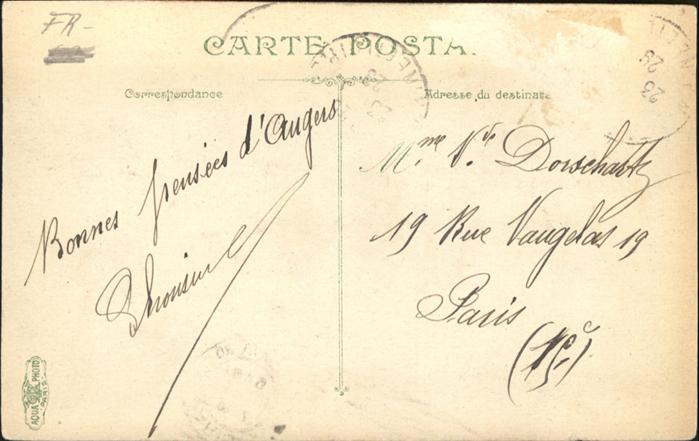 FR-
CARTE POSTA
Correspondance
Adresse du destinata
Bonnes pensées d'Angers
Mme Ve Dorschartz
19 Rue Vaugelas 19
Paris
(15e)
23
AQUA PHOTO
PARIS